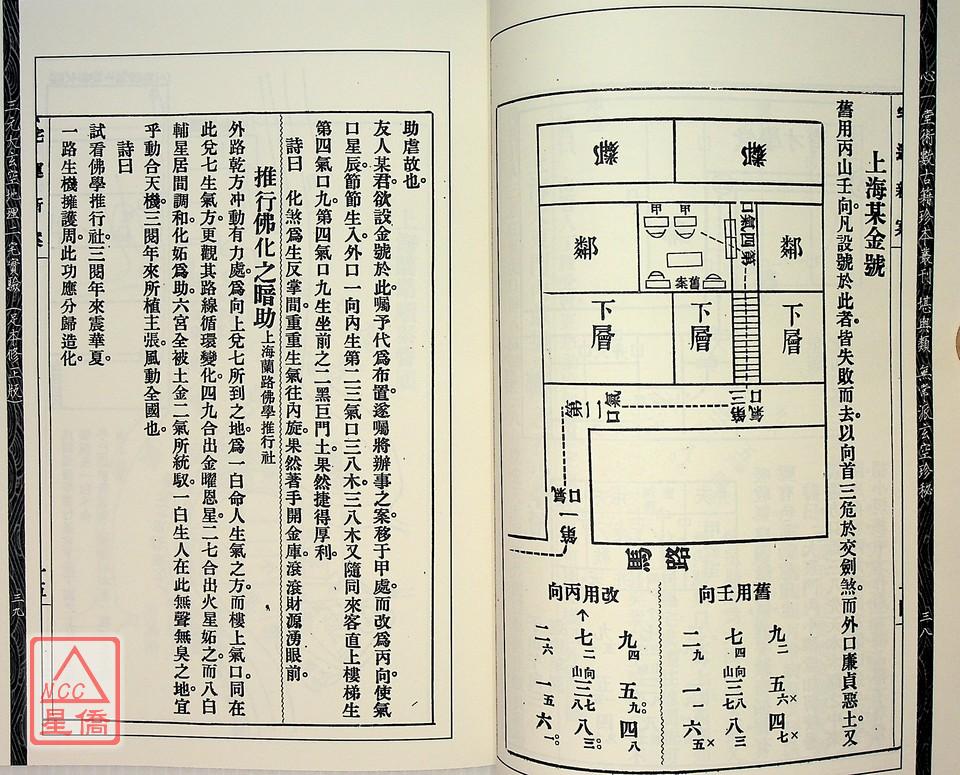 心一堂術數古籍珍本叢刊 堪輿類 無常派玄空珍秘
三八
上海某金號
舊用丙山壬向。凡設號於此者。皆失敗而去。以向首三危於交劍煞。而外口廉貞惡土。又
鄰
鄰
鄰
鄰
甲
甲
舊案
第四氣口
下層
下層
下層
第二氣口
第三氣口
第一氣口
馬路
舊用壬向
九二 五六× 四七×
七四 向三二山 八三
二九 一一 六五×
改用丙向
九四 五九 四八
七二 向 山 八三
二六 一五 六一
助虐故也。
友人某君。欲設金號於此。囑予代爲布置。遂囑將辦事之案。移于甲處。而改爲丙向。使氣
口星辰。節節生入。外口一向內生第一二三氣口三八木。三八木又隨同來客直上樓梯生
第四氣口九。第四氣口九生坐前之二黑巨門土。果然捷得厚利。
詩曰 化煞爲生反掌間。重重生氣往內旋。果然著手開金庫。滾滾財源湧眼前。
推行佛化之暗助 上海蘭路佛學推行社
外路乾方冲動有力。處爲向上兌七所到之地。爲一白命人生氣之方。而樓上氣口。同在
此兌七生氣方。更觀其路線循環變化。四九合出金曜恩星。二七合出火星妬之。而八白
輔星居間調和。化妬爲助。六宮全被土金二氣所統馭。一白生人。在此無聲無臭之地。宜
乎動合天機。三閱年來所植主張。風動全國也。
詩曰
試看佛學推行社。三閱年來震華夏。
一路生機擁護周。此功應分歸造化。
三元大玄空地理二宅實驗(足本修正版)
三九
NCC
星僑